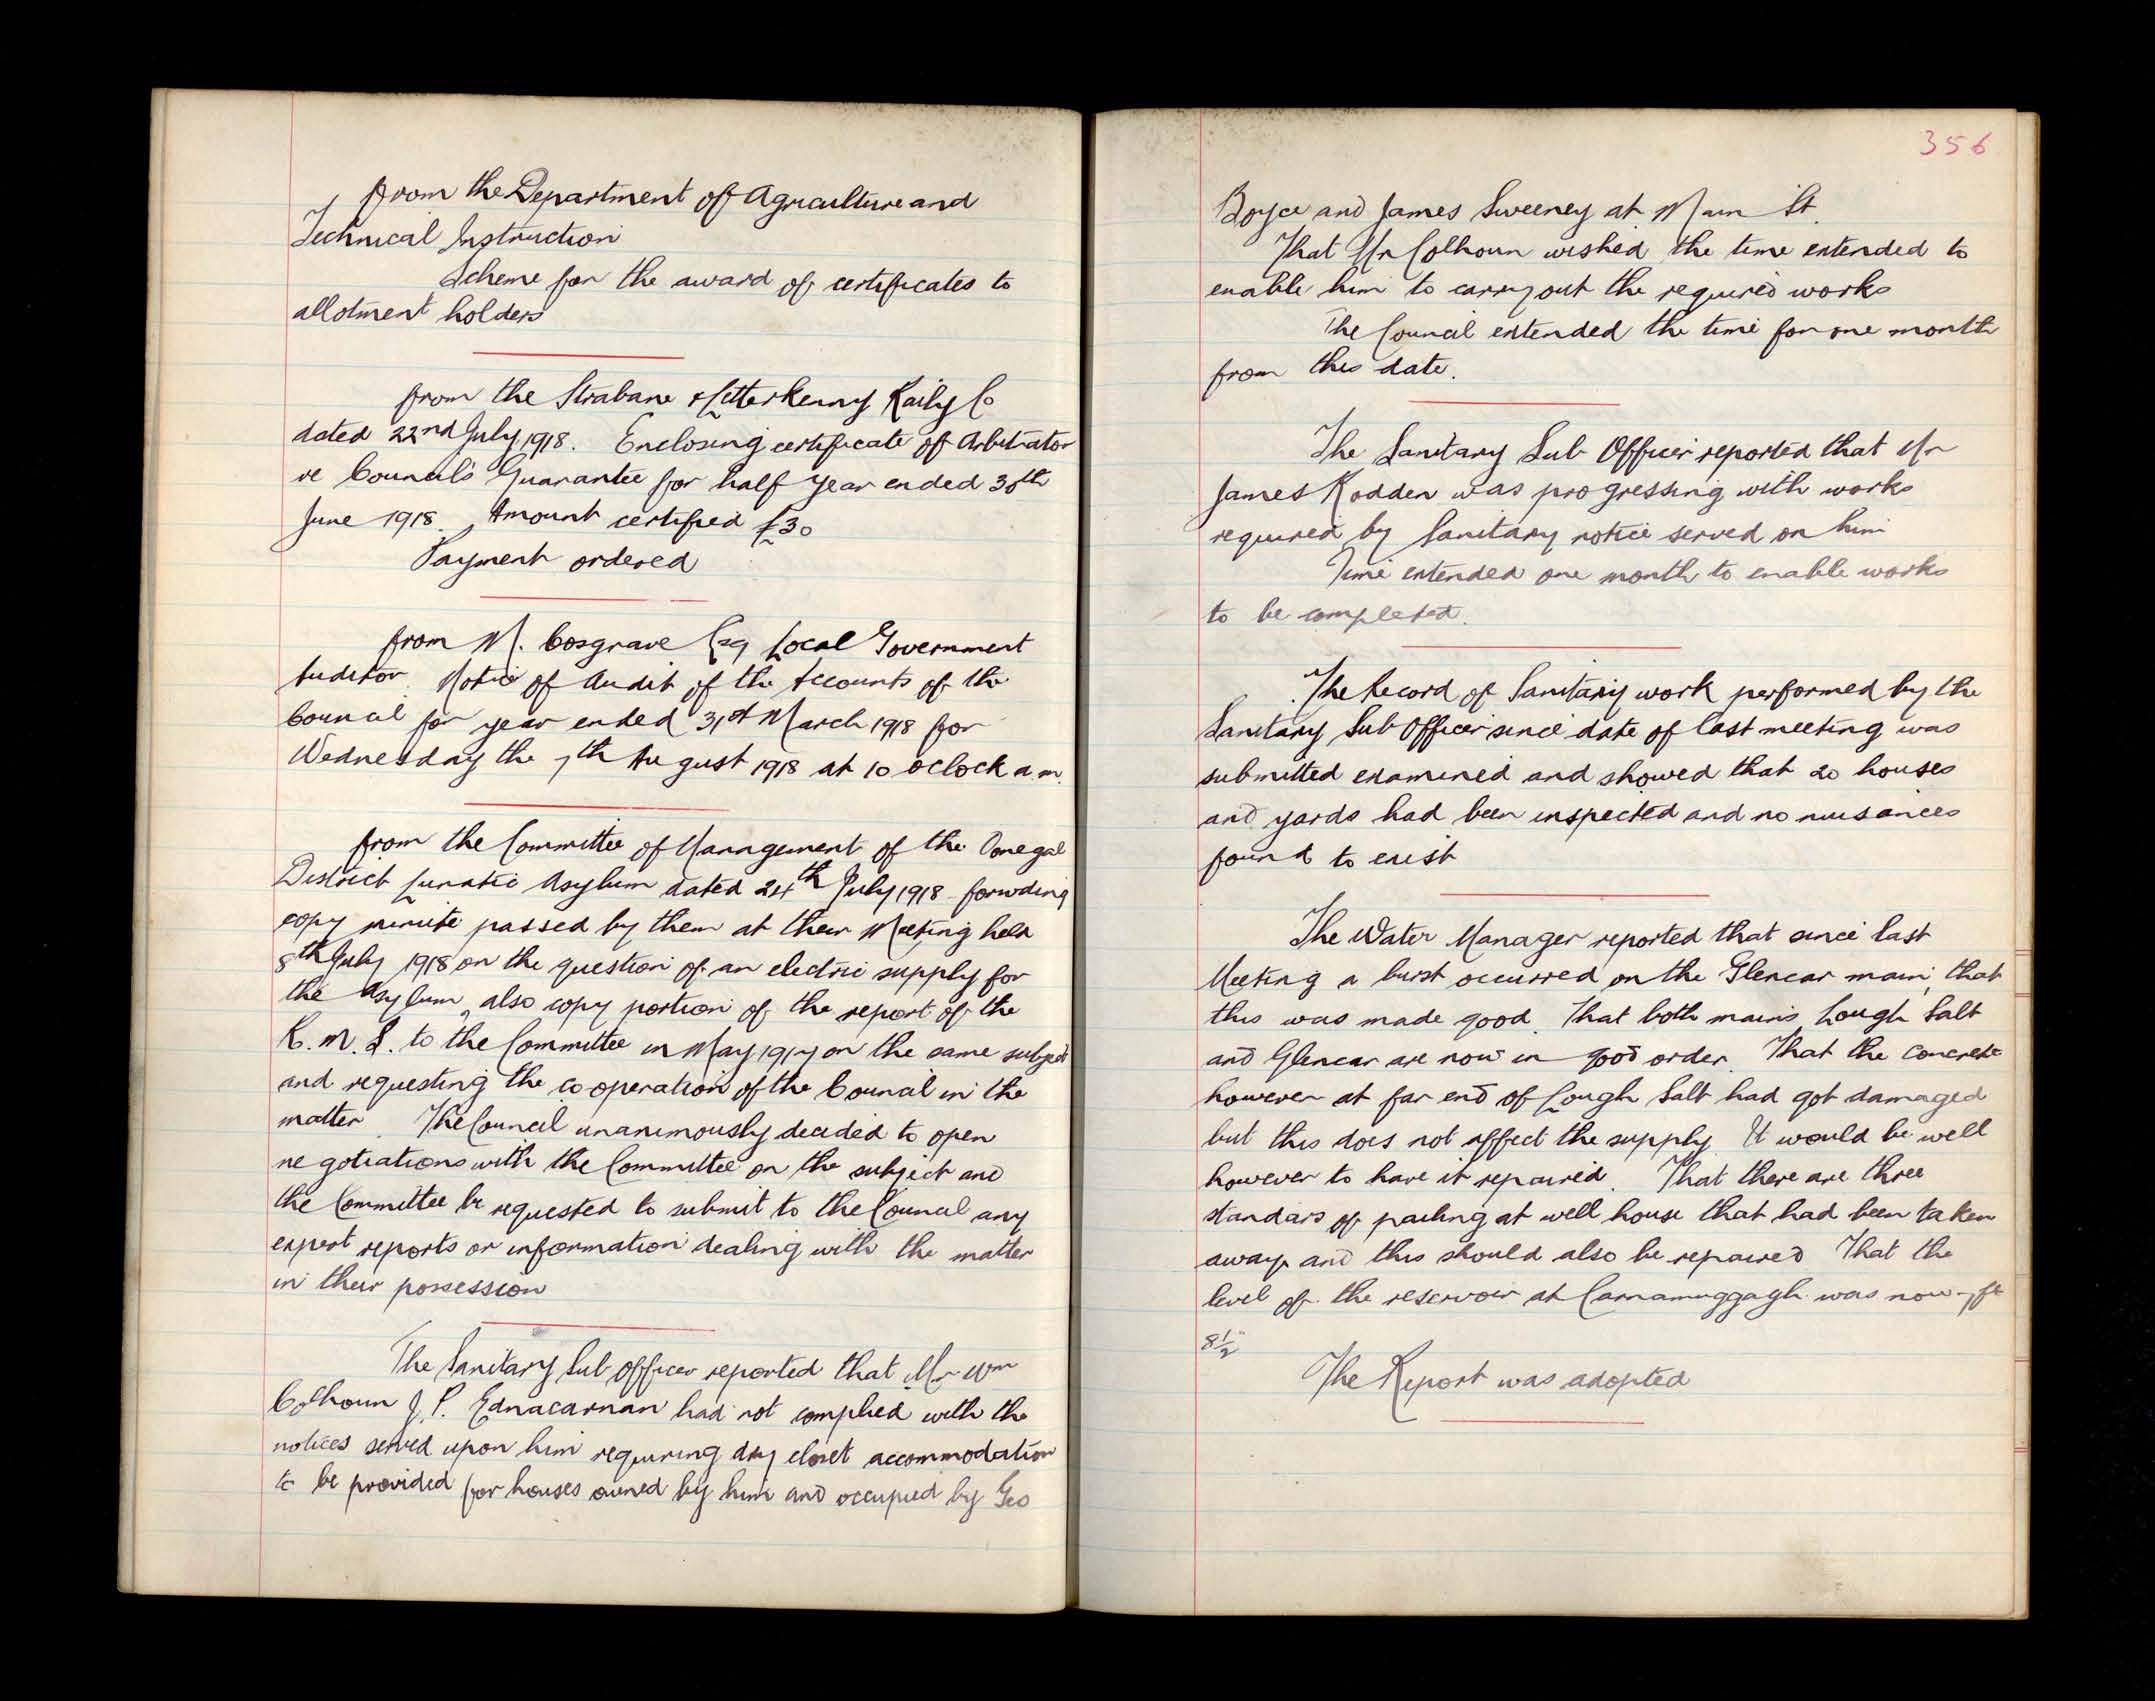 from the Department of Agriculture and
Technical Instruction
Scheme for the award of certificates to
allotment holders
from the Strabane & Letterkenny Raily Co
dated 22nd July 1918. Enclosing certificate of Arbitrator
re Council's Guarantee for half year ended 30th
June 1918. Amount certified £30
Payment ordered
from M. Cosgrave Esq Local Government
Auditor. Notice of Audit of the Accounts of the
Council for year ended 31st March 1918 for
Wednesday the 7th August 1918 at 10 oclock a.m.
from the Committee of Management of the Donegal
District Lunatic Asylum dated 24th July 1918 forwding
copy minute passed by them at their Meeting held
8th July 1918 on the question of an electric supply for
the Asylum, also copy portion of the report of the
R.M.S. to the Committee in May 1917 on the same subject
and requesting the co-operation of the Council in the
matter. The Council unanimously decided to open
negotiations with the Committee on the subject and
the Committee be requested to submit to the Council any
expert reports or information dealing with the matter
in their possession
The Sanitary Sub Officer reported that Mr Wm
Colhoun J.P. Ednacarnan had not complied with the
notices served upon him requiring dry closet accommodation
to be provided for houses owned by him and occupied by Geo
356
Boyce and James Sweeney at Main St.
That Mr Colhoun wished the time extended to
enable him to carry out the required works
The Council extended the time for one month
from this date.
The Sanitary Sub Officer reported that Mr
James Rodden was progressing with works
required by Sanitary notice served on him
Time extended one month to enable works
to be completed.
The Record of Sanitary work performed by the
Sanitary Sub Officer since date of last meeting was
submitted examined and showed that 20 houses
and yards had been inspected and no nuisances
found to exist
The Water Manager reported that since last
Meeting a burst occurred on the Glencar main, that
this was made good. That both mains Lough Salt
and Glencar are now in good order. That the concrete
however at far end of Lough Salt had got damaged
but this does not affect the supply. It would be well
however to have it repaired. That there are three
standars of pailing at well house that had been taken
away and this should also be repaired That the
level of the reservoir at Carnamuggagh was now 7 ft
8½"
The Report was adopted